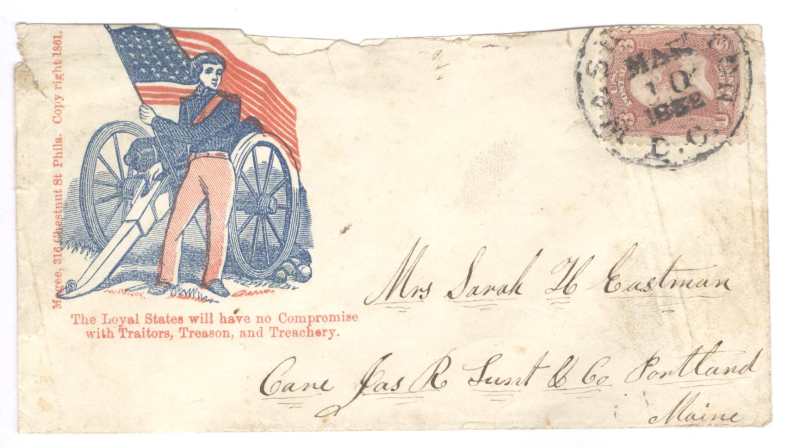 Magee, 316 Chestnut St Phila. Copy right 1861.
MAR
10
1862
D.C.
The Loyal States will have no Compromise
with Traitors, Treason, and Treachery.
Mrs Sarah H Eastman
Care Jas R Lunt & Co Portland
Maine